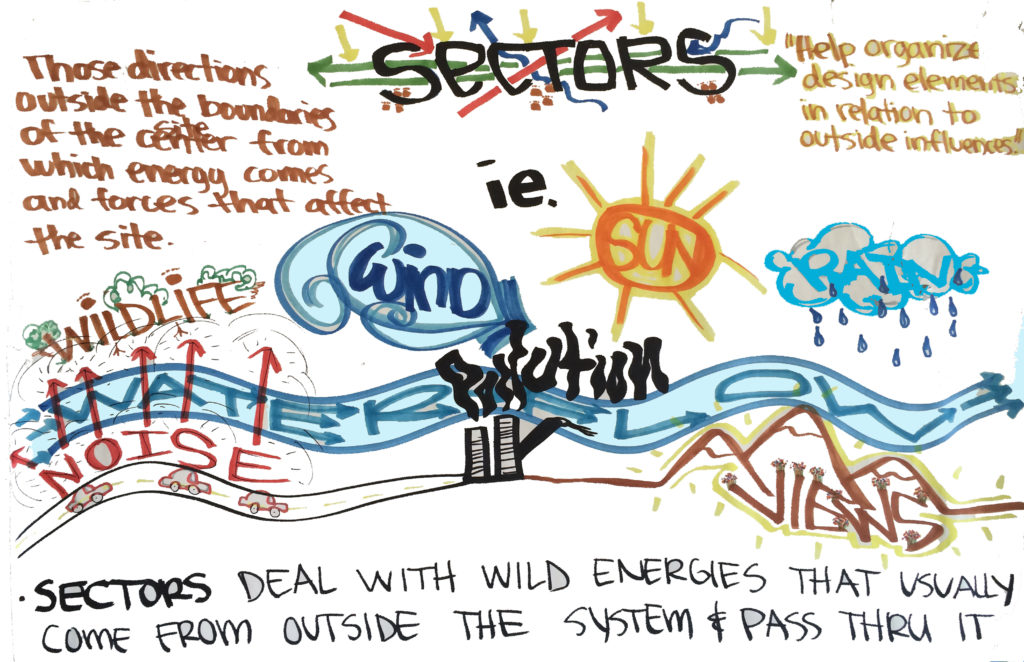 SECTORS
Those directions
outside the boundaries
of the center from
site
which energy comes
and forces that affect
the site.
"Help organize
design elements
in relation to
outside influences."
ie.
SUN
WIND
RAIN
WILDLIFE
Pollution
WATER FLOW
NOISE
VIEWS
· SECTORS DEAL WITH WILD ENERGIES THAT USUALLY
COME FROM OUTSIDE THE SYSTEM & PASS THRU IT